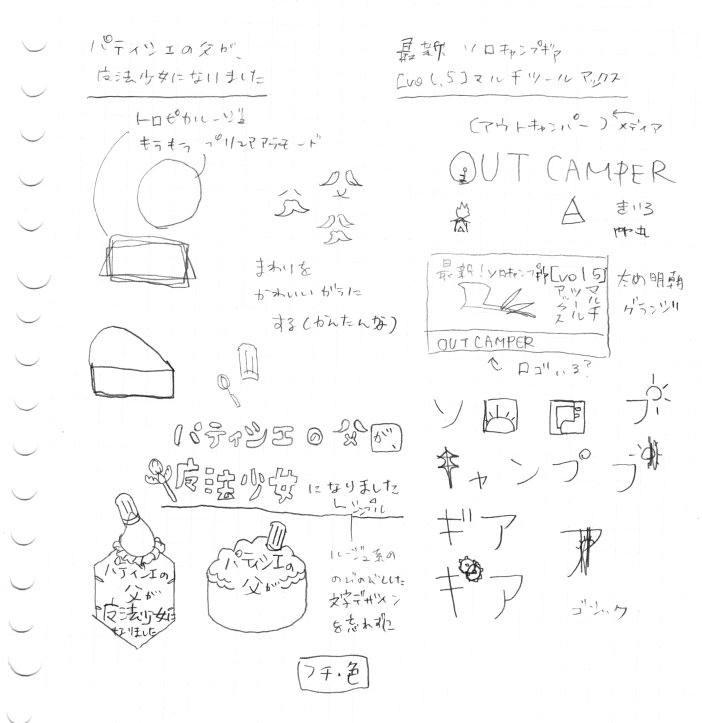 パティシエの父が、
魔法少女になりました
トロピカルージュ
キラキラ プリキュアアラモード
まわりを
かわいいがらに
する(かんたんな)
パティシエの父が、
魔法少女になりました
レシプル
パティシエの
父が
魔法少女に
なりました
パティシエの
父が
ルージュ系の
のびのびとした
文字デザイン
を忘れずに
フチ・色
最新 ソロキャンプギア
[vol,5]マルチツールアックス
(アウトキャンパー)←メディア
OUT CAMPER
きいろ
やや丸
最新!ソロキャンプ
[vol5]
マルチ
ツール
アックス
OUT CAMPER
太め明朝
グランジ
ロゴいろ?
ソロ
キャンプ
ギア
ギア
ゴシック